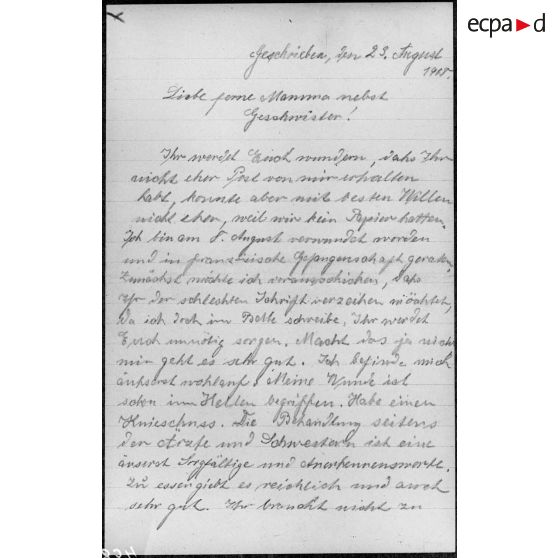 ecpa►d
Geschrieben, den 23. August
1918.
Liebe ferne Mamma nebst
Geschwister!
Ihr werdet Euch wundern, dahs Ihr
nicht eher Post von mir erhalten
habt, konnte aber mit besten Willen
nicht eher, weil wir kein Papier hatten.
Ich bin am 8. August verwundet worden
und in französische Gefangenschaft geraten.
Zunächst möchte ich vorausschicken, dahs
Ihr der schlechten Schrift verzeihen möchtet,
da ich doch im Bette schreibe. Ihr werdet
Euch unnötig sorgen. Macht das ja nicht
mir geht es sehr gut. Ich befinde mich
äußerst wohlauf. Meine Wunde ist
schon im Heilen begriffen. Habe einen
Knieschuss. Die Behandlung seitens
der Ärzte und Schwestern ist eine
äusserst Sorgfältige und Anerkennenswerte.
Zu essen giebt es reichlich und auch
sehr gut. Ihr braucht nicht zu